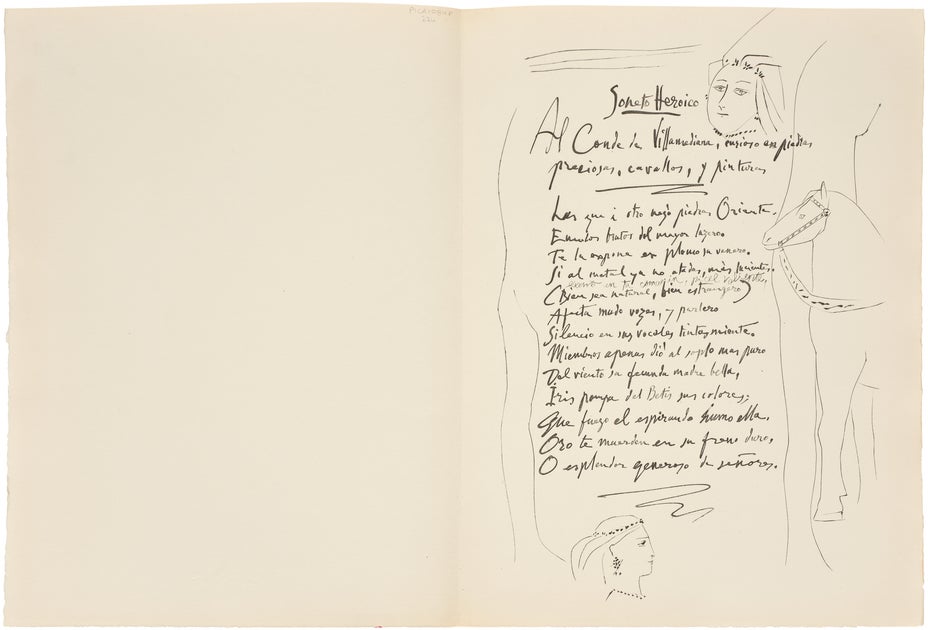 Soneto Heroico
Al Conde de Villamediana, curioso en piedras
preciosas, cavallos, y pinturas
Las que a otro negò piedras Oriente,
Emulos brutos del mayor lucero,
Te las expone en plomo su venero,
Si al metal ya no atadas, mas lucientes.
quanto en tu camarin, pincel valiente
(Bien sea natural, bien estrangero)
Afecta mudo vozes, y parlero
Silencio en sus vocales tintas miente.
Miembros apenas diò al soplo mas puro
Del viento su fecunda madre bella,
Iris pompa del Betis sus colores;
Que fuego el espirando humo ella.
Oro te muerden en su freno duro,
O esplendor generoso de señores.